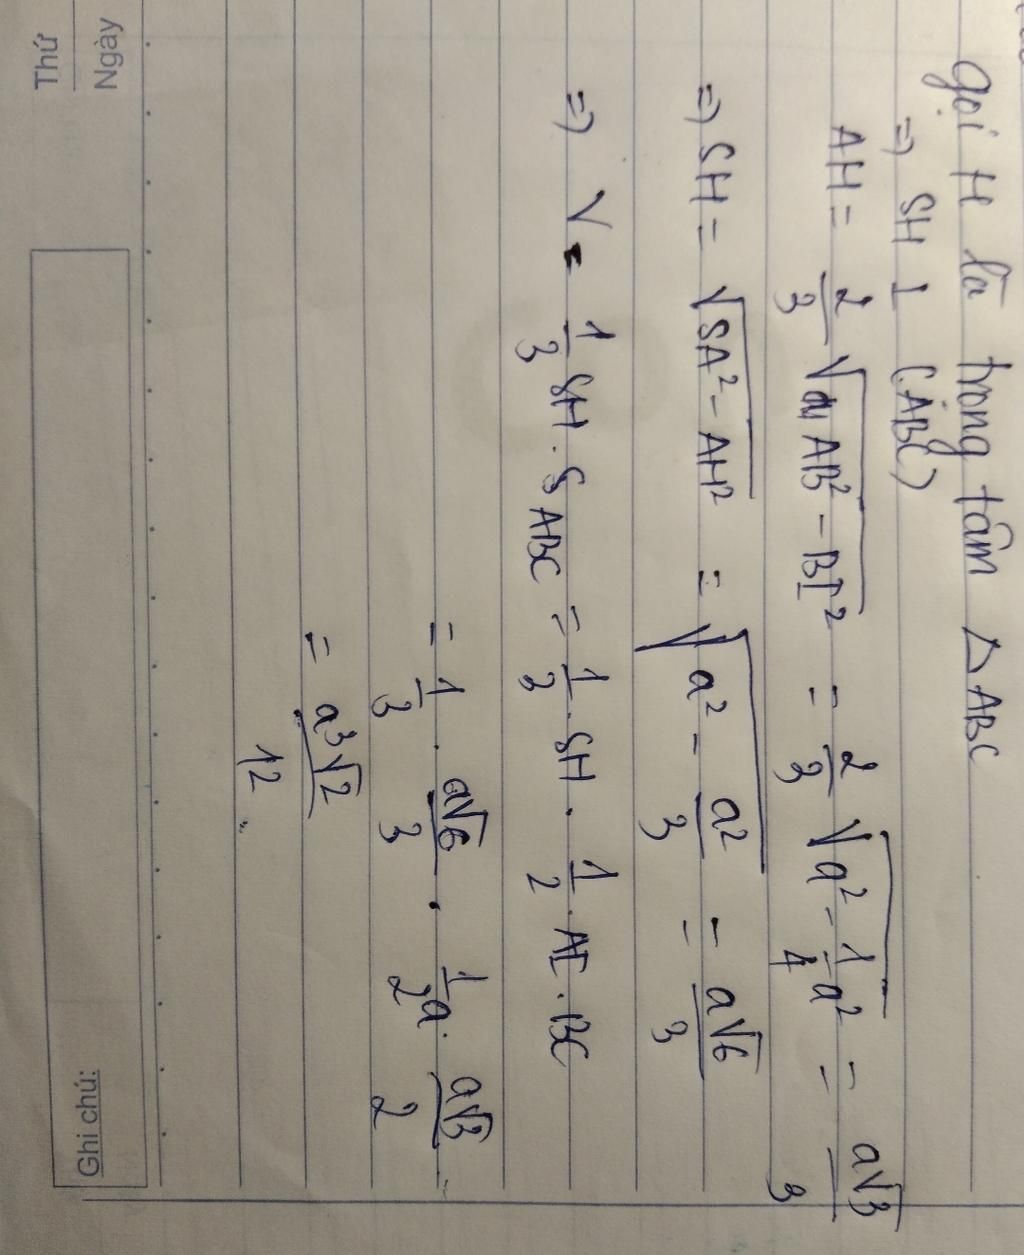 Thứ
Ngày
Ghi chú:
Gọi H là trọng tâm Δ ABC
=> SH ⊥ (ABC)
AH = 2/3 √(AB² - BI²) = 2/3 √(a² - 1/4 a²) = a√3/3
=> SH = √(SA² - AH²) = √(a² - a²/3) = a√6/3
=> V = 1/3 SH . S ABC = 1/3 . SH . 1/2 . AI . BC
= 1/3 . a√6/3 . 1/2 a . a√3/2
= a³√2/12